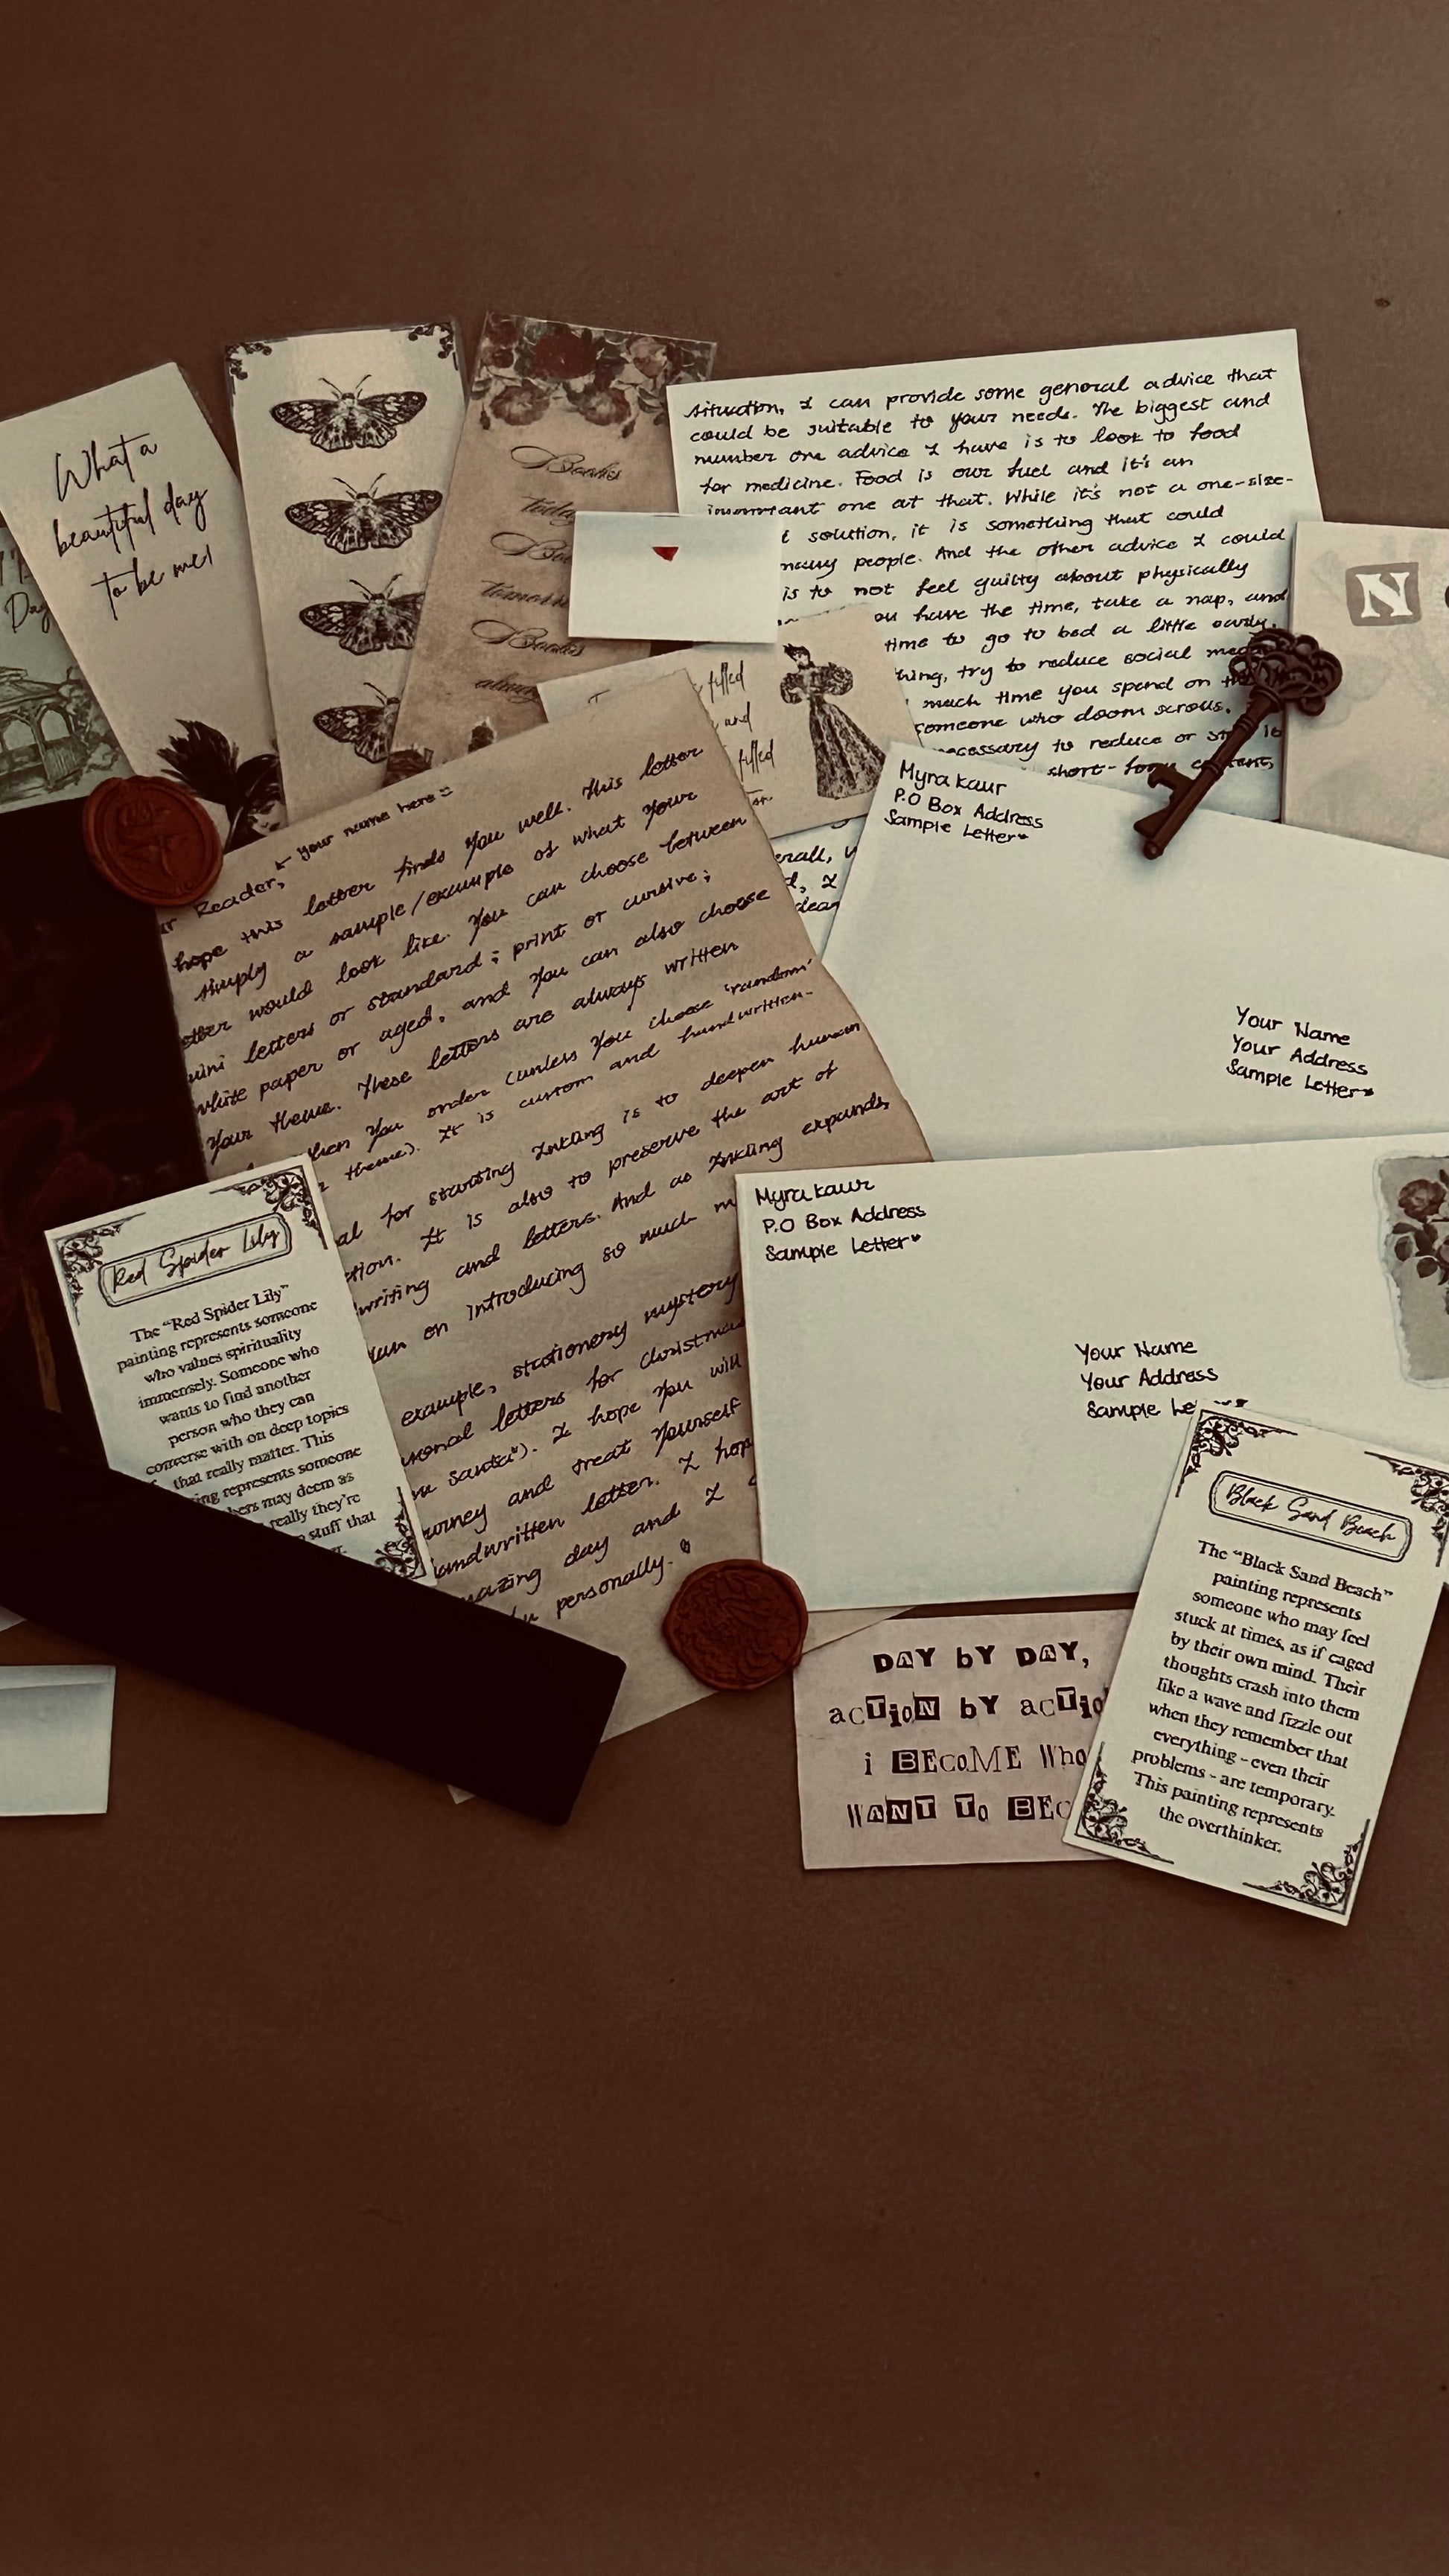 What a
beautiful day
to be me!
Day
Books
today
Books
Books
situation, I can provide some general advice that
could be suitable to your needs. The biggest and
number one advice I have is to look to food
for medicine. Food is our fuel and it's an
important one at that. While it's not a one-size-
solution, it is something that could
many people. And the other advice I could
is to not feel guilty about physically
have the time, take a nap, and
time to go to bed a little early.
try to reduce social
much time you spend on
someone who doom scrolls.
necessary to reduce or
short-form content,
N
filled
and
filled
Myra Kaur
P.O Box Address
Sample Letter*
Your Name
Your Address
Sample Letter*
← your name here :)
Reader,
hope this letter finds you well. This letter
simply a sample/example of what your
would look like. You can choose between
mini letters or standard; print or cursive;
white paper or aged, and you can also choose
your theme. These letters are always written
when you order (unless you choose 'random'
theme). It is custom and handwritten.
for starting Inkling is to deepen human
It is also to preserve the art of
writing and letters. And as Inkling expands,
on introducing so much
example, stationery mystery
letters for Christmas
santa"). I hope you will
and treat yourself
handwritten letter. I hope
day and I
personally.
Myra Kaur
P.O Box Address
Sample Letter*
Your Name
Your Address
Sample
Red Spider Lily
The “Red Spider Lily”
painting represents someone
who values spirituality
immensely. Someone who
wants to find another
person who they can
converse with on deep topics
that really matter. This
represents someone
may deem as
really they're
stuff that
DAY bY DAY,
acTioN bY
i BECoME Who
WANT To
Black Sand Beach
The “Black Sand Beach”
painting represents
someone who may feel
stuck at times, as if caged
by their own mind. Their
thoughts crash into them
like a wave and fizzle out
when they remember that
everything - even their
problems - are temporary.
This painting represents
the overthinker.